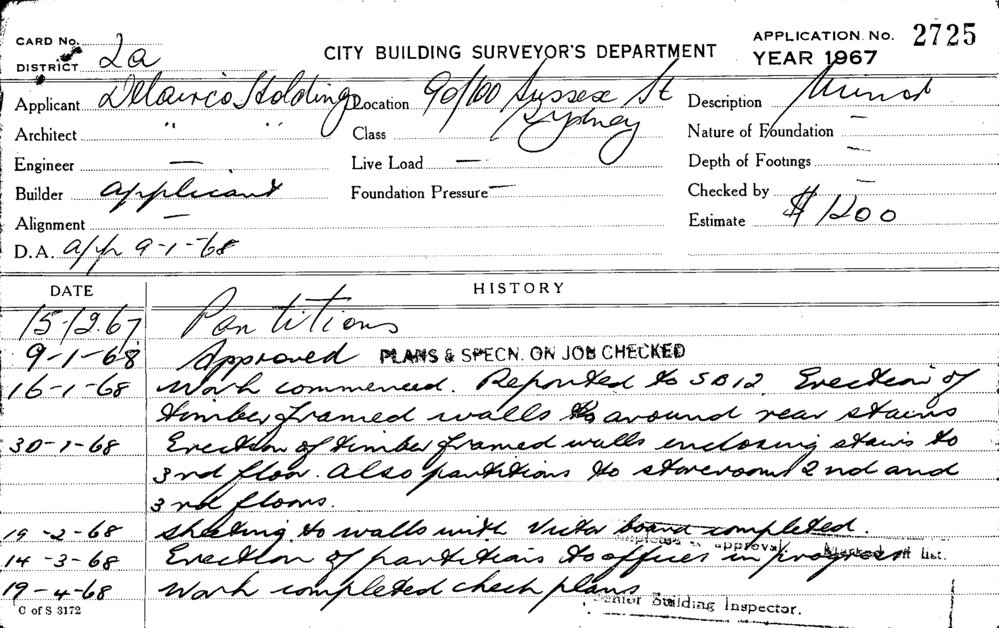 CARD No.
DISTRICT 2a
CITY BUILDING SURVEYOR'S DEPARTMENT
APPLICATION No. 2725
YEAR 1967
Applicant Delairco Holdings Location 90/100 Sussex St Description
Architect " " Class Sydney Nature of Foundation —
Engineer — Live Load — Depth of Footings —
Builder applicant Foundation Pressure — Checked by —
Alignment — Estimate $1200
D.A. app 9-1-68
DATE HISTORY
15-12-67 Partitions
9-1-68 Approved PLANS & SPECN. ON JOB CHECKED
16-1-68 Work commenced. Reported to SB12 Erection of
timber framed walls around rear stairs
30-1-68 Erection of timber framed walls enclosing stairs to
3rd floor. Also partitions to storeroom 2nd and
3rd floors.
19-2-68 Sheeting to walls with Victor board completed.
approval Marked off list.
14-3-68 Erection of partitions to offices in progress
19-4-68 Work completed check plans
C of S 3172 Senior Building Inspector.